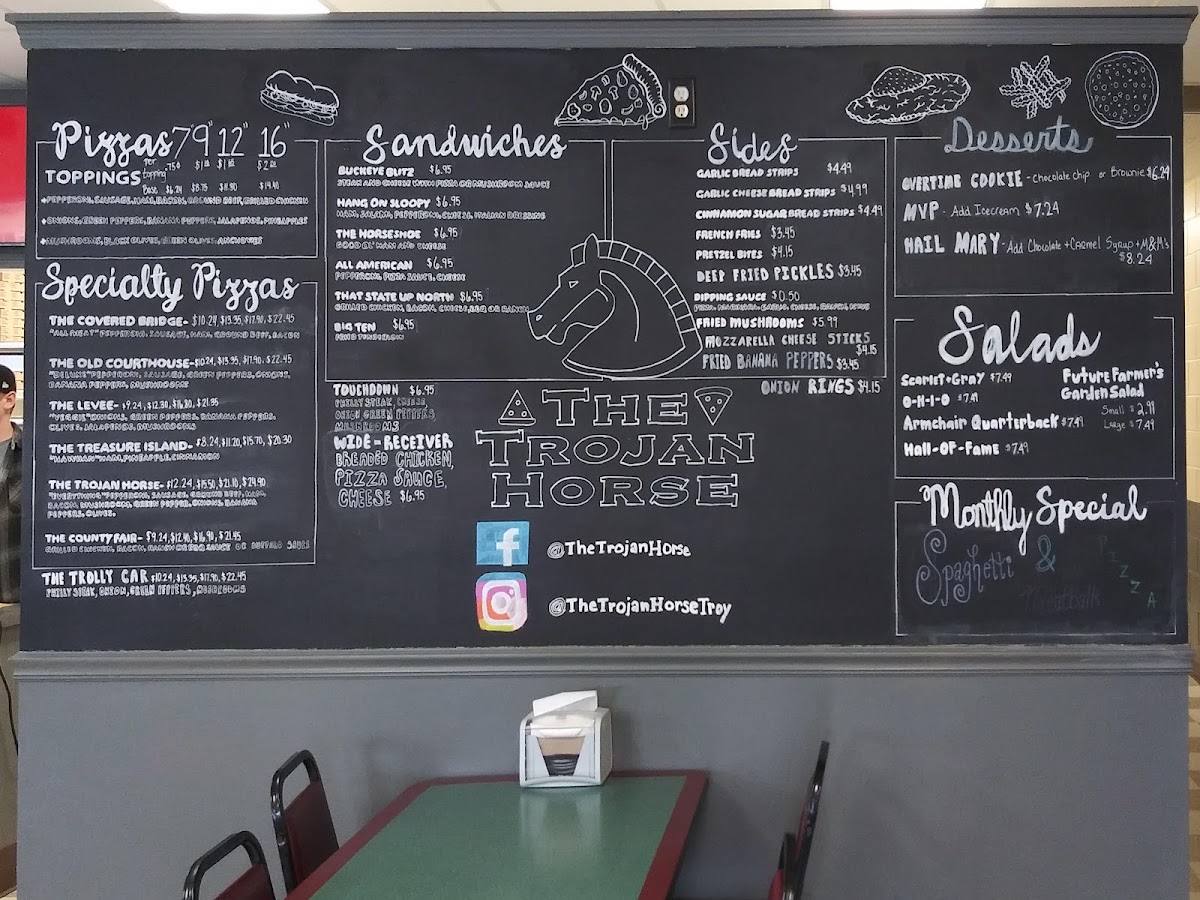 Pizzas 7" 9" 12" 16"
TOPPINGS per topping .75¢
Base $6.24 $8.75 $11.90
PEPPERONI, SAUSAGE, HAM, BACON, GROUND BEEF, GRILLED CHICKEN
ONIONS, GREEN PEPPERS, BANANA PEPPERS, JALAPENOS, PINEAPPLE
MUSHROOMS, BLACK OLIVES, GREEN OLIVES, ANCHOVIES
Specialty Pizzas
THE COVERED BRIDGE- $10.24, $13.35, $17.90, $22.45
"ALL MEAT" PEPPERONI, SAUSAGE, HAM, GROUND BEEF, BACON
THE OLD COURTHOUSE- $10.24, $13.35, $17.90, $22.45
"DELUXE" PEPPERONI, SAUSAGE, GREEN PEPPERS, ONIONS,
BANANA PEPPERS, MUSHROOMS
THE LEVEE- $9.24, $12.30, $16.80, $21.35
"VEGGIE" ONIONS, GREEN PEPPERS, BANANA PEPPERS,
OLIVES, JALAPENOS, MUSHROOMS
THE TREASURE ISLAND- $8.24, $11.20, $15.70, $20.30
"HAWIIAN" HAM, PINEAPPLE, CINNAMON
THE TROJAN HORSE- $12.24, $15.50, $21.10, $24.90
"EVERYTHING" PEPPERONI, SAUSAGE, GROUND BEEF, HAM,
BACON, MUSHROOM, GREEN PEPPER, ONIONS, BANANA
PEPPERS, OLIVES.
THE COUNTY FAIR- $9.24, $12.40, $16.90, $21.45
GRILLED CHICKEN, BACON, RANCH OR BBQ SAUCE OR BUFFALO SAUCE
THE TROLLY CAR $10.24, $13.35, $17.90, $22.45
PHILLY STEAK, ONION, GREEN PEPPERS, MUSHROOMS
Sandwiches
BUCKEYE BLITZ $6.95
STEAK AND CHEESE WITH PIZZA OR MUSHROOM SAUCE
HANG ON SLOOPY $6.95
HAM, SALAMI, PEPPERONI, CHEESE, ITALIAN DRESSING
THE HORSESHOE $6.95
GOOD OL' HAM AND CHEESE
ALL AMERICAN $6.95
PEPPERONI, PIZZA SAUCE, CHEESE
THAT STATE UP NORTH $6.95
GRILLED CHICKEN, BACON, CHEESE, BBQ OR RANCH
BIG TEN $6.95
FRIED TENDERLOIN
TOUCHDOWN $6.95
PHILLY STEAK, CHEESE,
ONION GREEN PEPPERS,
MUSHROOMS
WIDE-RECEIVER
BREADED CHICKEN,
PIZZA SAUCE,
CHEESE $6.95
Sides
GARLIC BREAD STRIPS $4.49
GARLIC CHEESE BREAD STRIPS $4.99
CINNAMON SUGAR BREAD STRIPS $4.49
FRENCH FRIES $3.45
PRETZEL BITES $4.15
DEEP FRIED PICKLES $3.45
DIPPING SAUCE $0.50
PIZZA, MARINARA, GARLIC, CHEESE, RANCH,
FRIED MUSHROOMS $5.99
MOZZARELLA CHEESE STICKS
$4.15
FRIED BANANA PEPPERS $3.45
ONION RINGS $4.15
THE
TROJAN
HORSE
@TheTrojanHorse
@TheTrojanHorseTroy
Desserts
OVERTIME COOKIE - Chocolate chip or Brownie $6.24
MVP - Add Icecream $7.24
HAIL MARY - Add Chocolate + Caramel Syrup + M&M's
$8.24
Salads
Scarlet+Gray $7.49
O-H-I-O $7.49
Armchair Quarterback $7.49
Hall-Of-Fame $7.49
Future Farmer's
Garden Salad
Small $2.99
Large $7.49
Monthly Special
Spaghetti &
Meatball
PIZZA